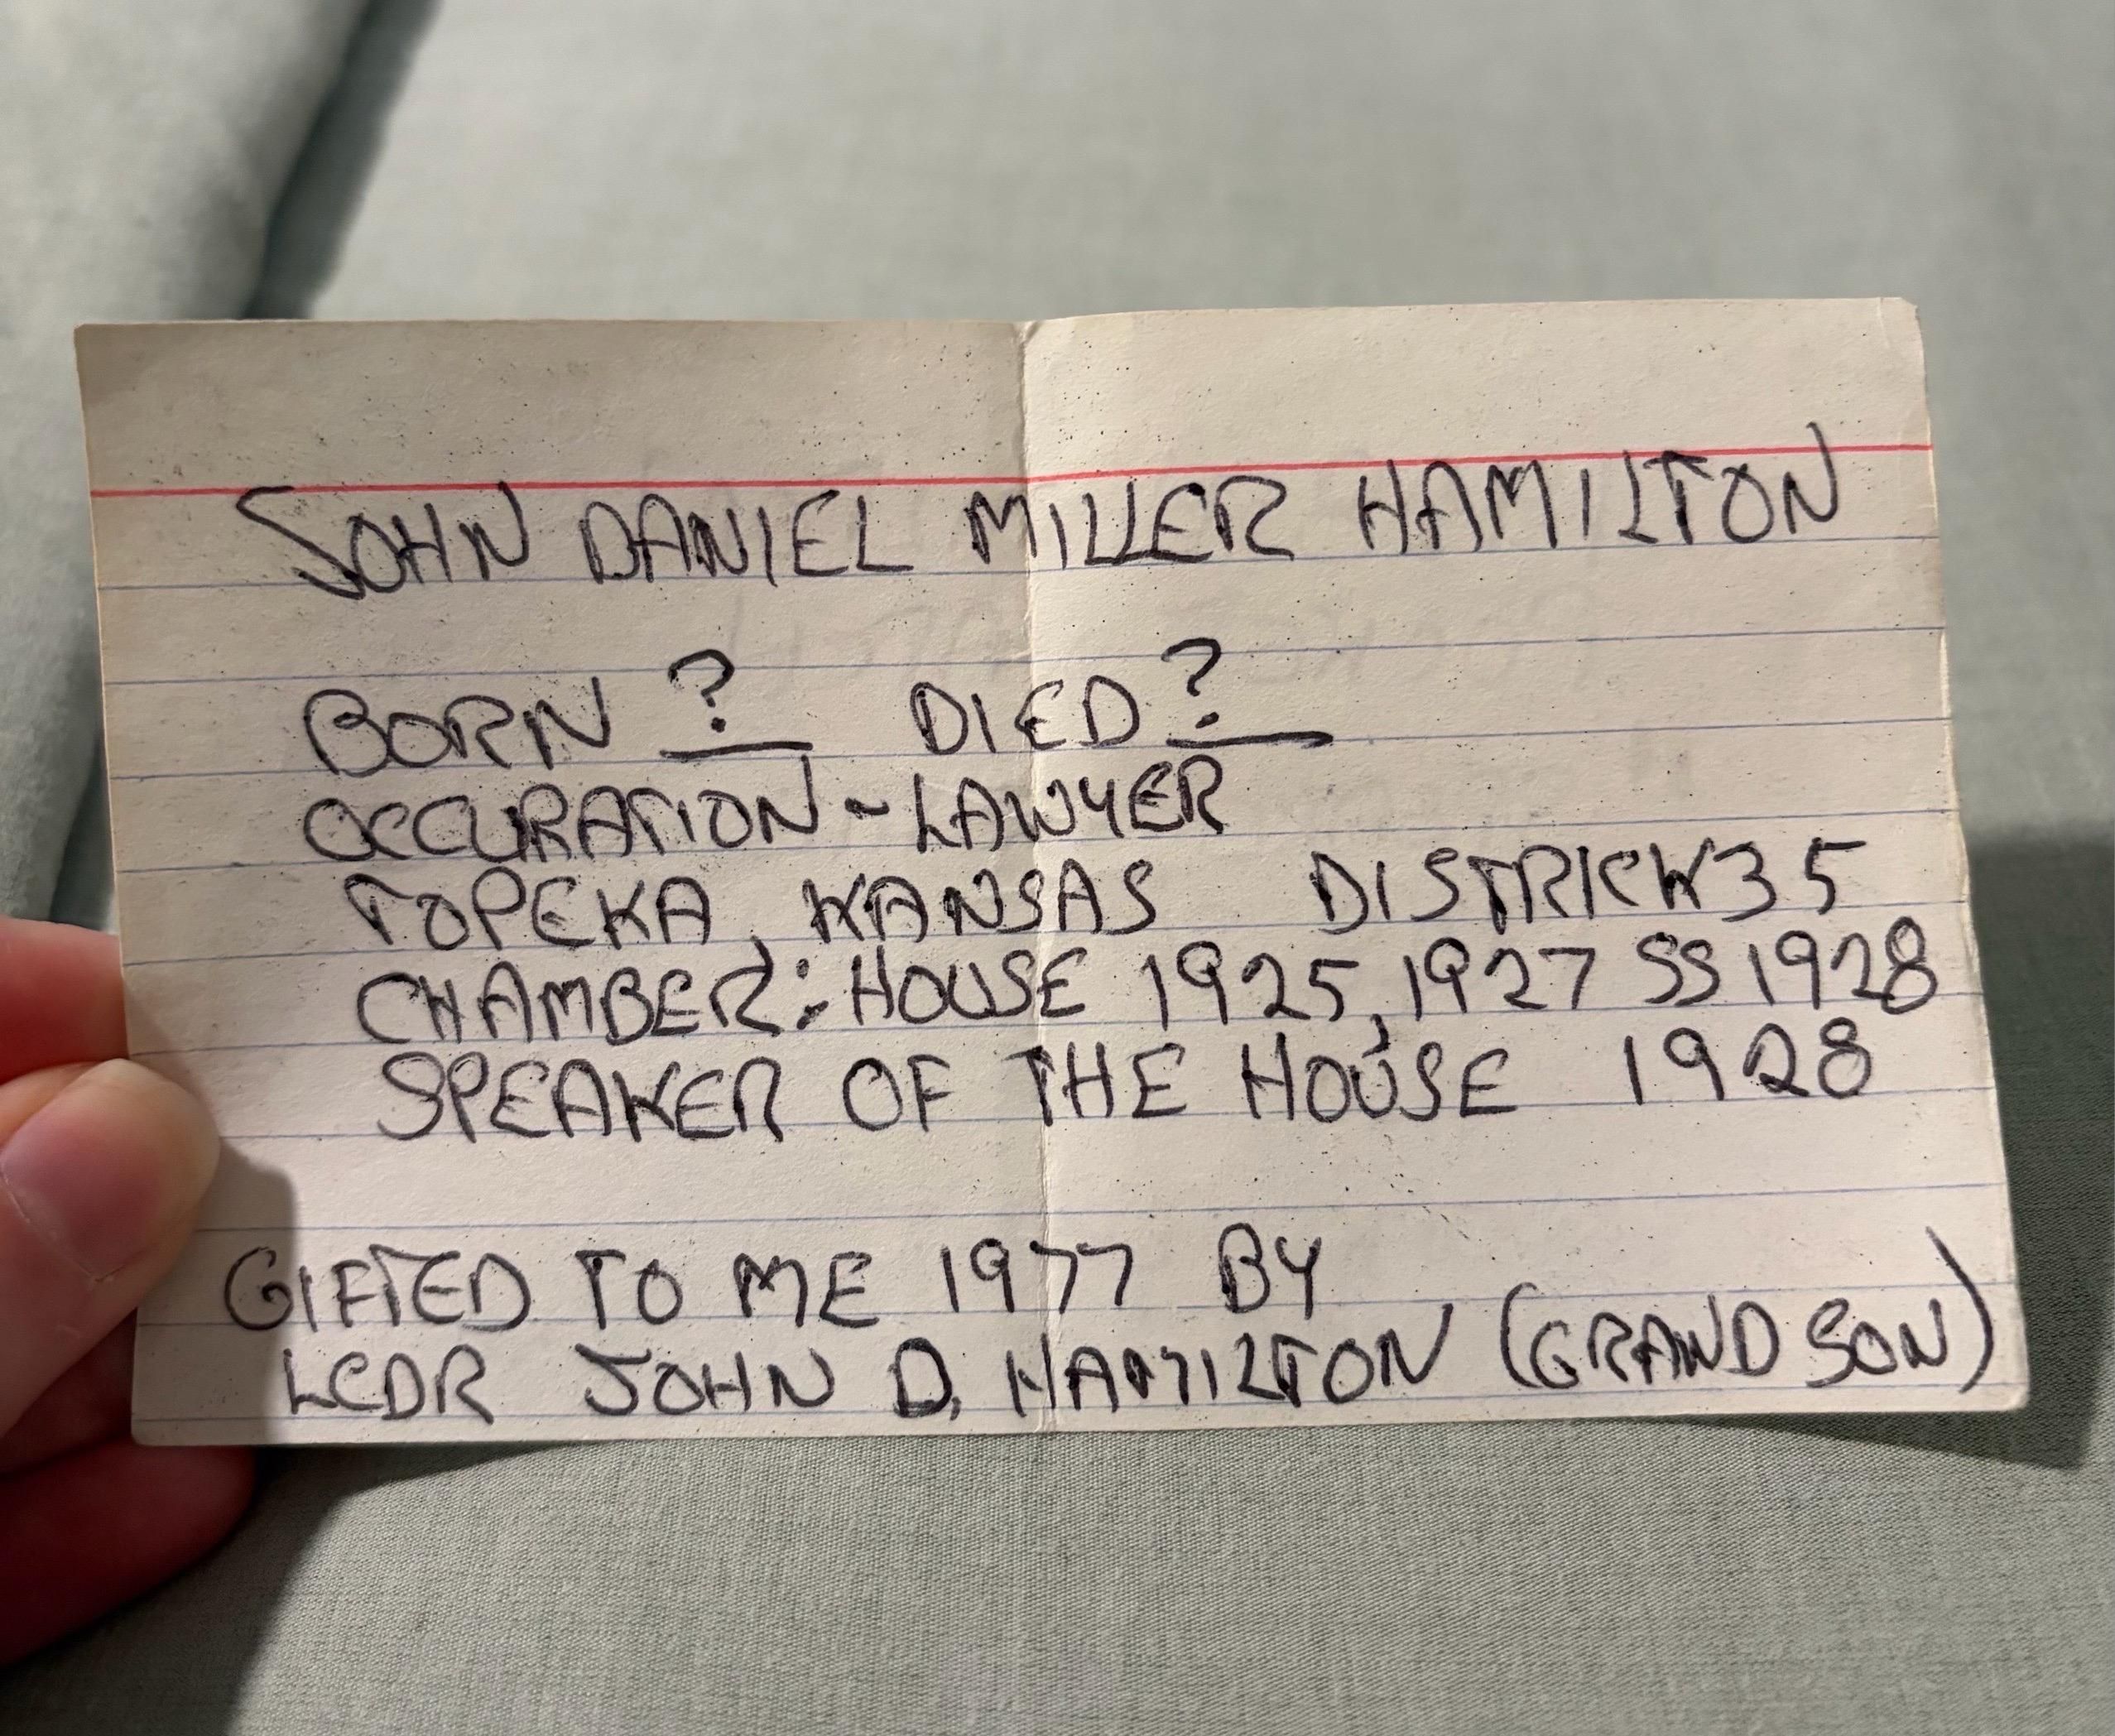 JOHN DANIEL MILLER HAMILTON
BORN ? DIED ?
OCCUPATION - LAWYER
TOPEKA, KANSAS DISTRICK 35
CHAMBER: HOUSE 1925, 1927 SS 1928
SPEAKER OF THE HOUSE 1928
GIFTED TO ME 1977 BY
LCDR JOHN D. HAMILTON (GRANDSON)